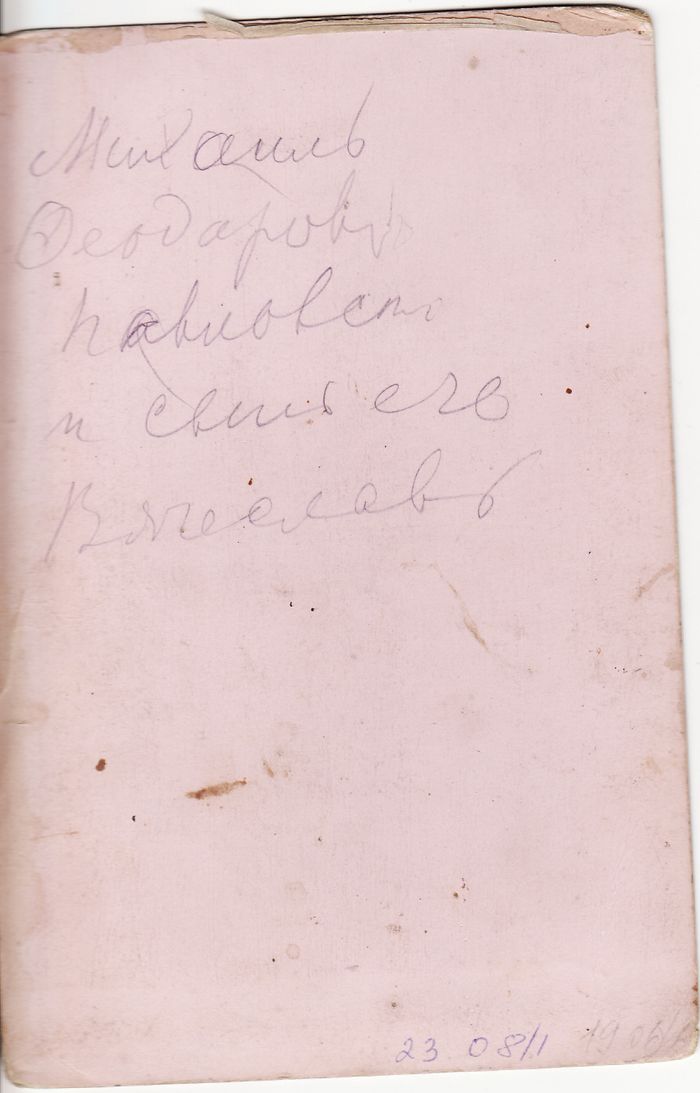 Михаилъ
Ѳеодаровъ
Павловски
и сынъ его
Вячеславъ
23 08/1 1906/